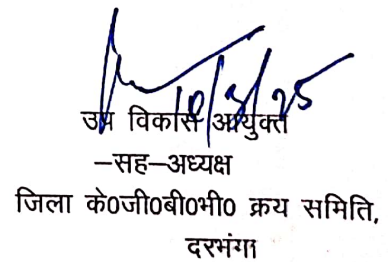 10/3/25
उप विकास आयुक्त
–सह–अध्यक्ष
जिला के0जी0बी0भी0 क्रय समिति,
दरभंगा